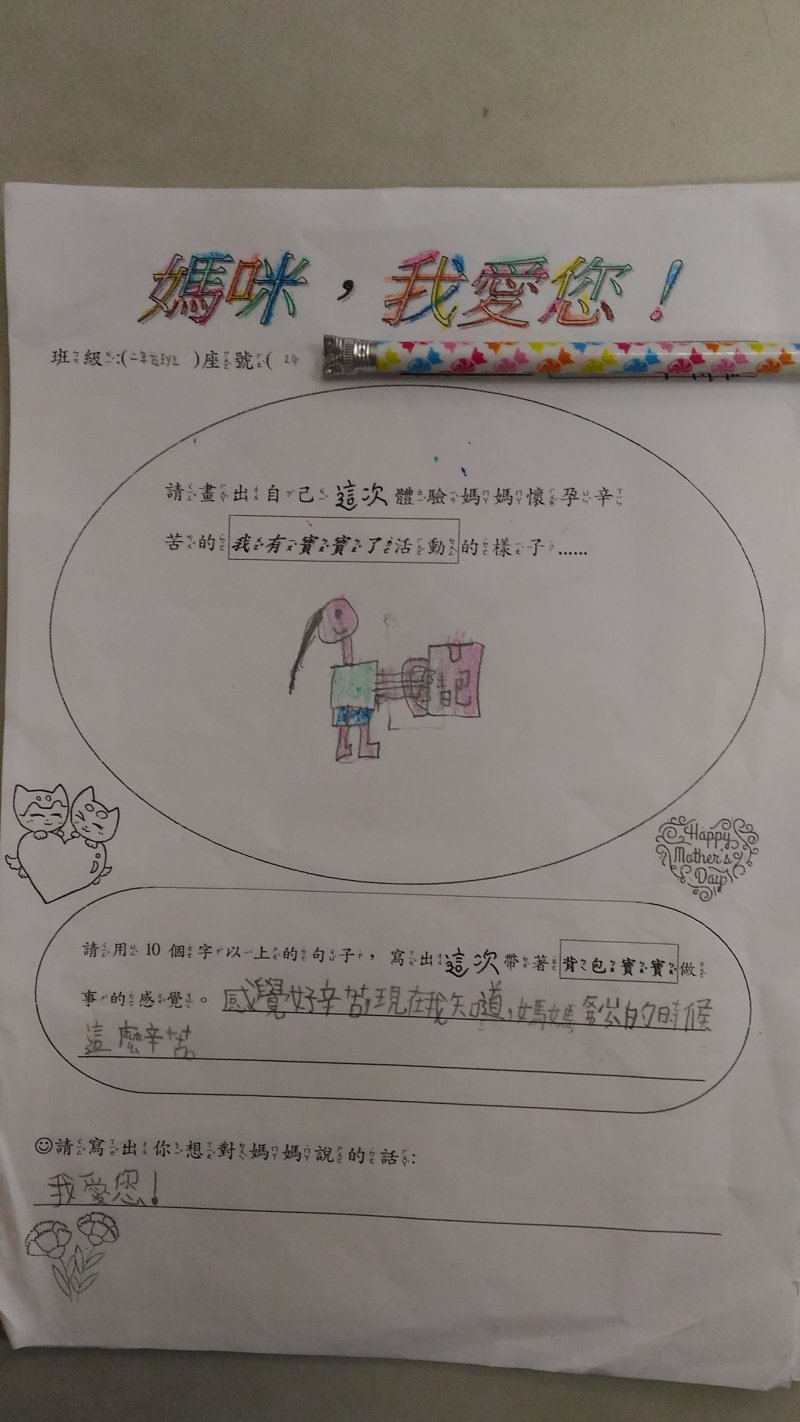 媽咪，我愛您！
班級:(二年五班)座號:( 24
請畫出自己這次體驗媽媽懷孕辛
苦的我有寶寶了活動的樣子……
日記
Happy
Mother's
Day
請用 10 個字以上的句子，寫出這次帶著背包寶寶做
事的感覺。感覺好辛苦,現在我知道,媽媽 的時候
這麼辛苦
☺請寫出你想對媽媽說的話:
我愛您!